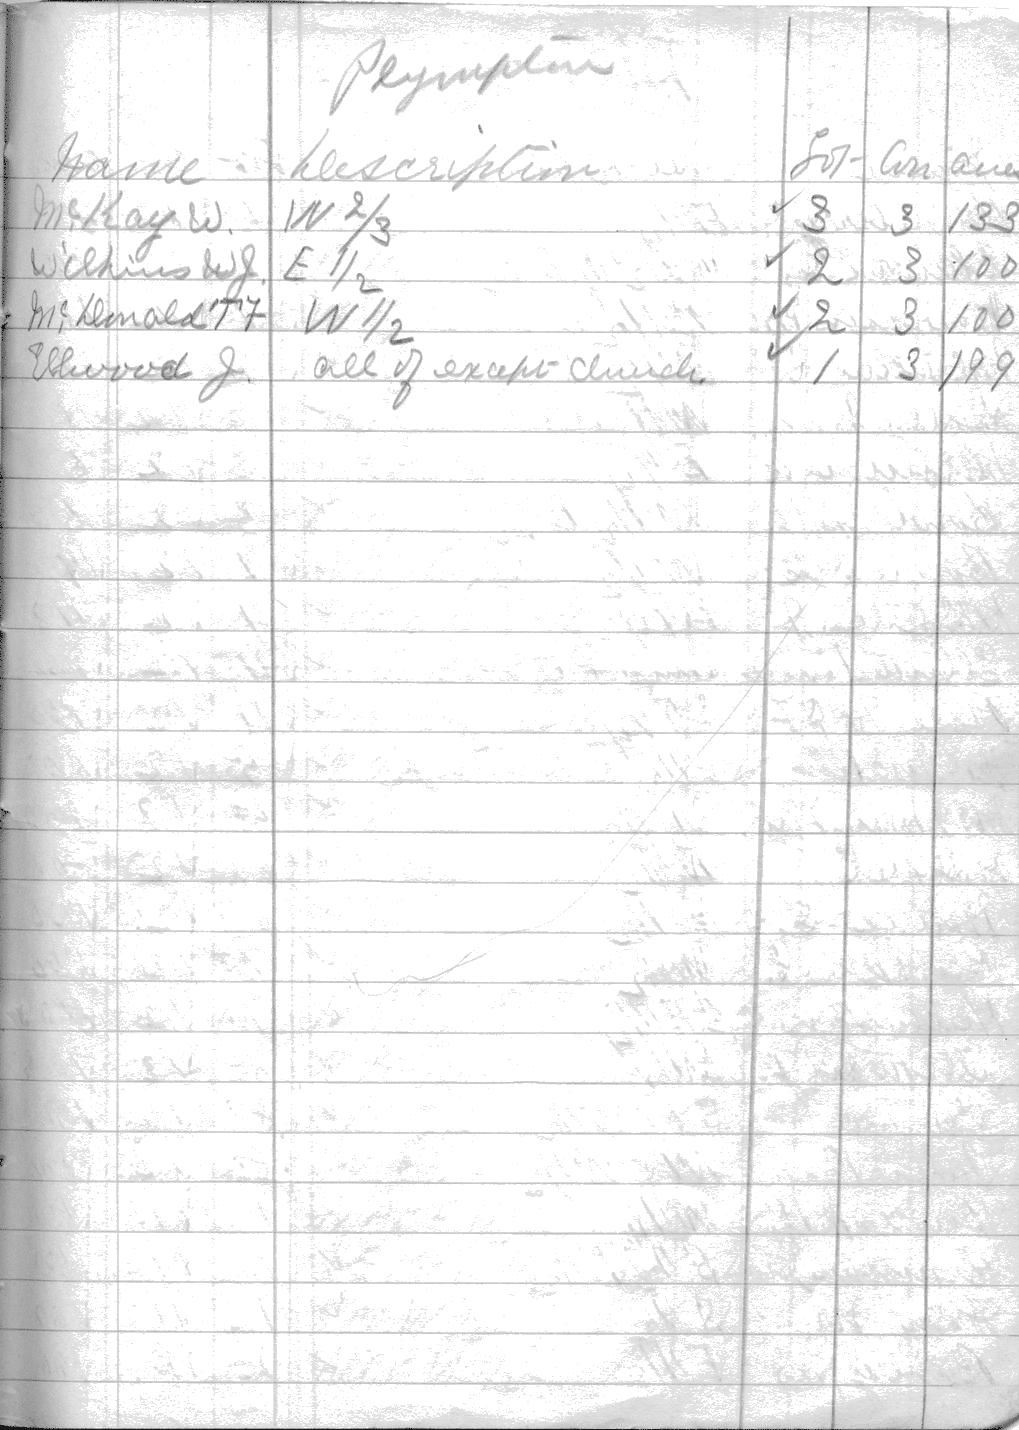 Plympton
Name Description Lot Con acres
McKay W. W 2/3 ✓ 3 3 133
Wilkins W J. E 1/2 ✓ 2 3 100
McDonald T F W 1/2 ✓ 2 3 100
Ellwood J. all of except church ✓ 1 3 199